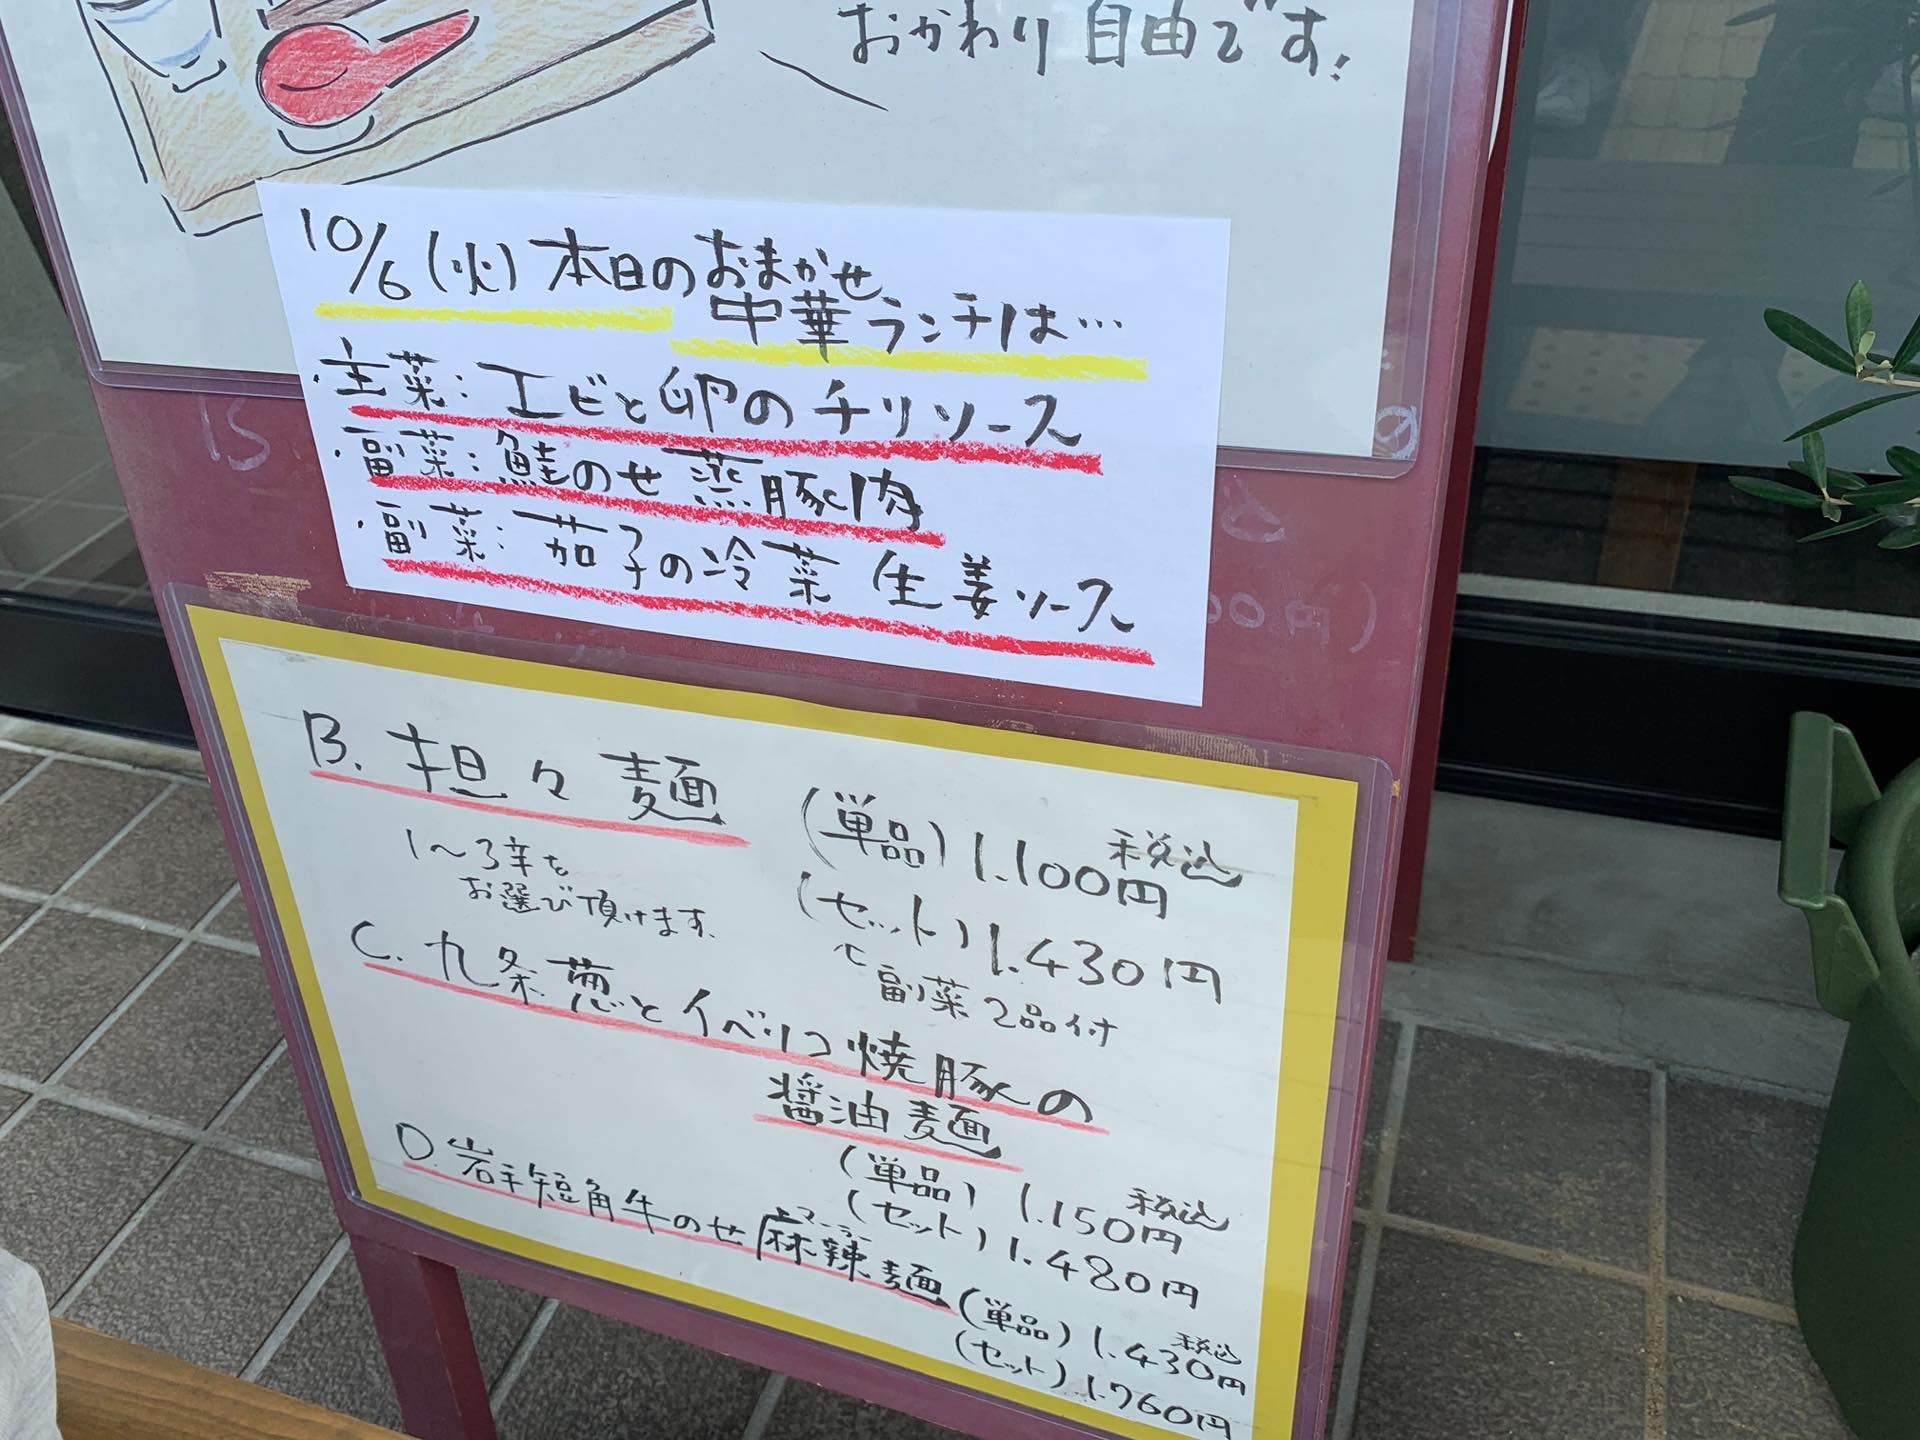 おかわり自由です!
10/6(火)本日のおまかせ
中華ランチは…
・主菜:エビと卵のチリソース
・副菜:鮭のせ蒸豚肉
・副菜:茄子の冷菜 生姜ソース
B. 担々麺 (単品)1.100円 税込
1〜3辛を
お選び頂けます.
(セット)1.430円
副菜2品付
C. 九条葱とイベリコ焼豚の
醤油麺
(単品) 1.150円 税込
(セット) 1.480円
D. 岩手短角牛のせ麻辣麺 (単品) 1.430円 税込
マーラー
(セット) 1.760円